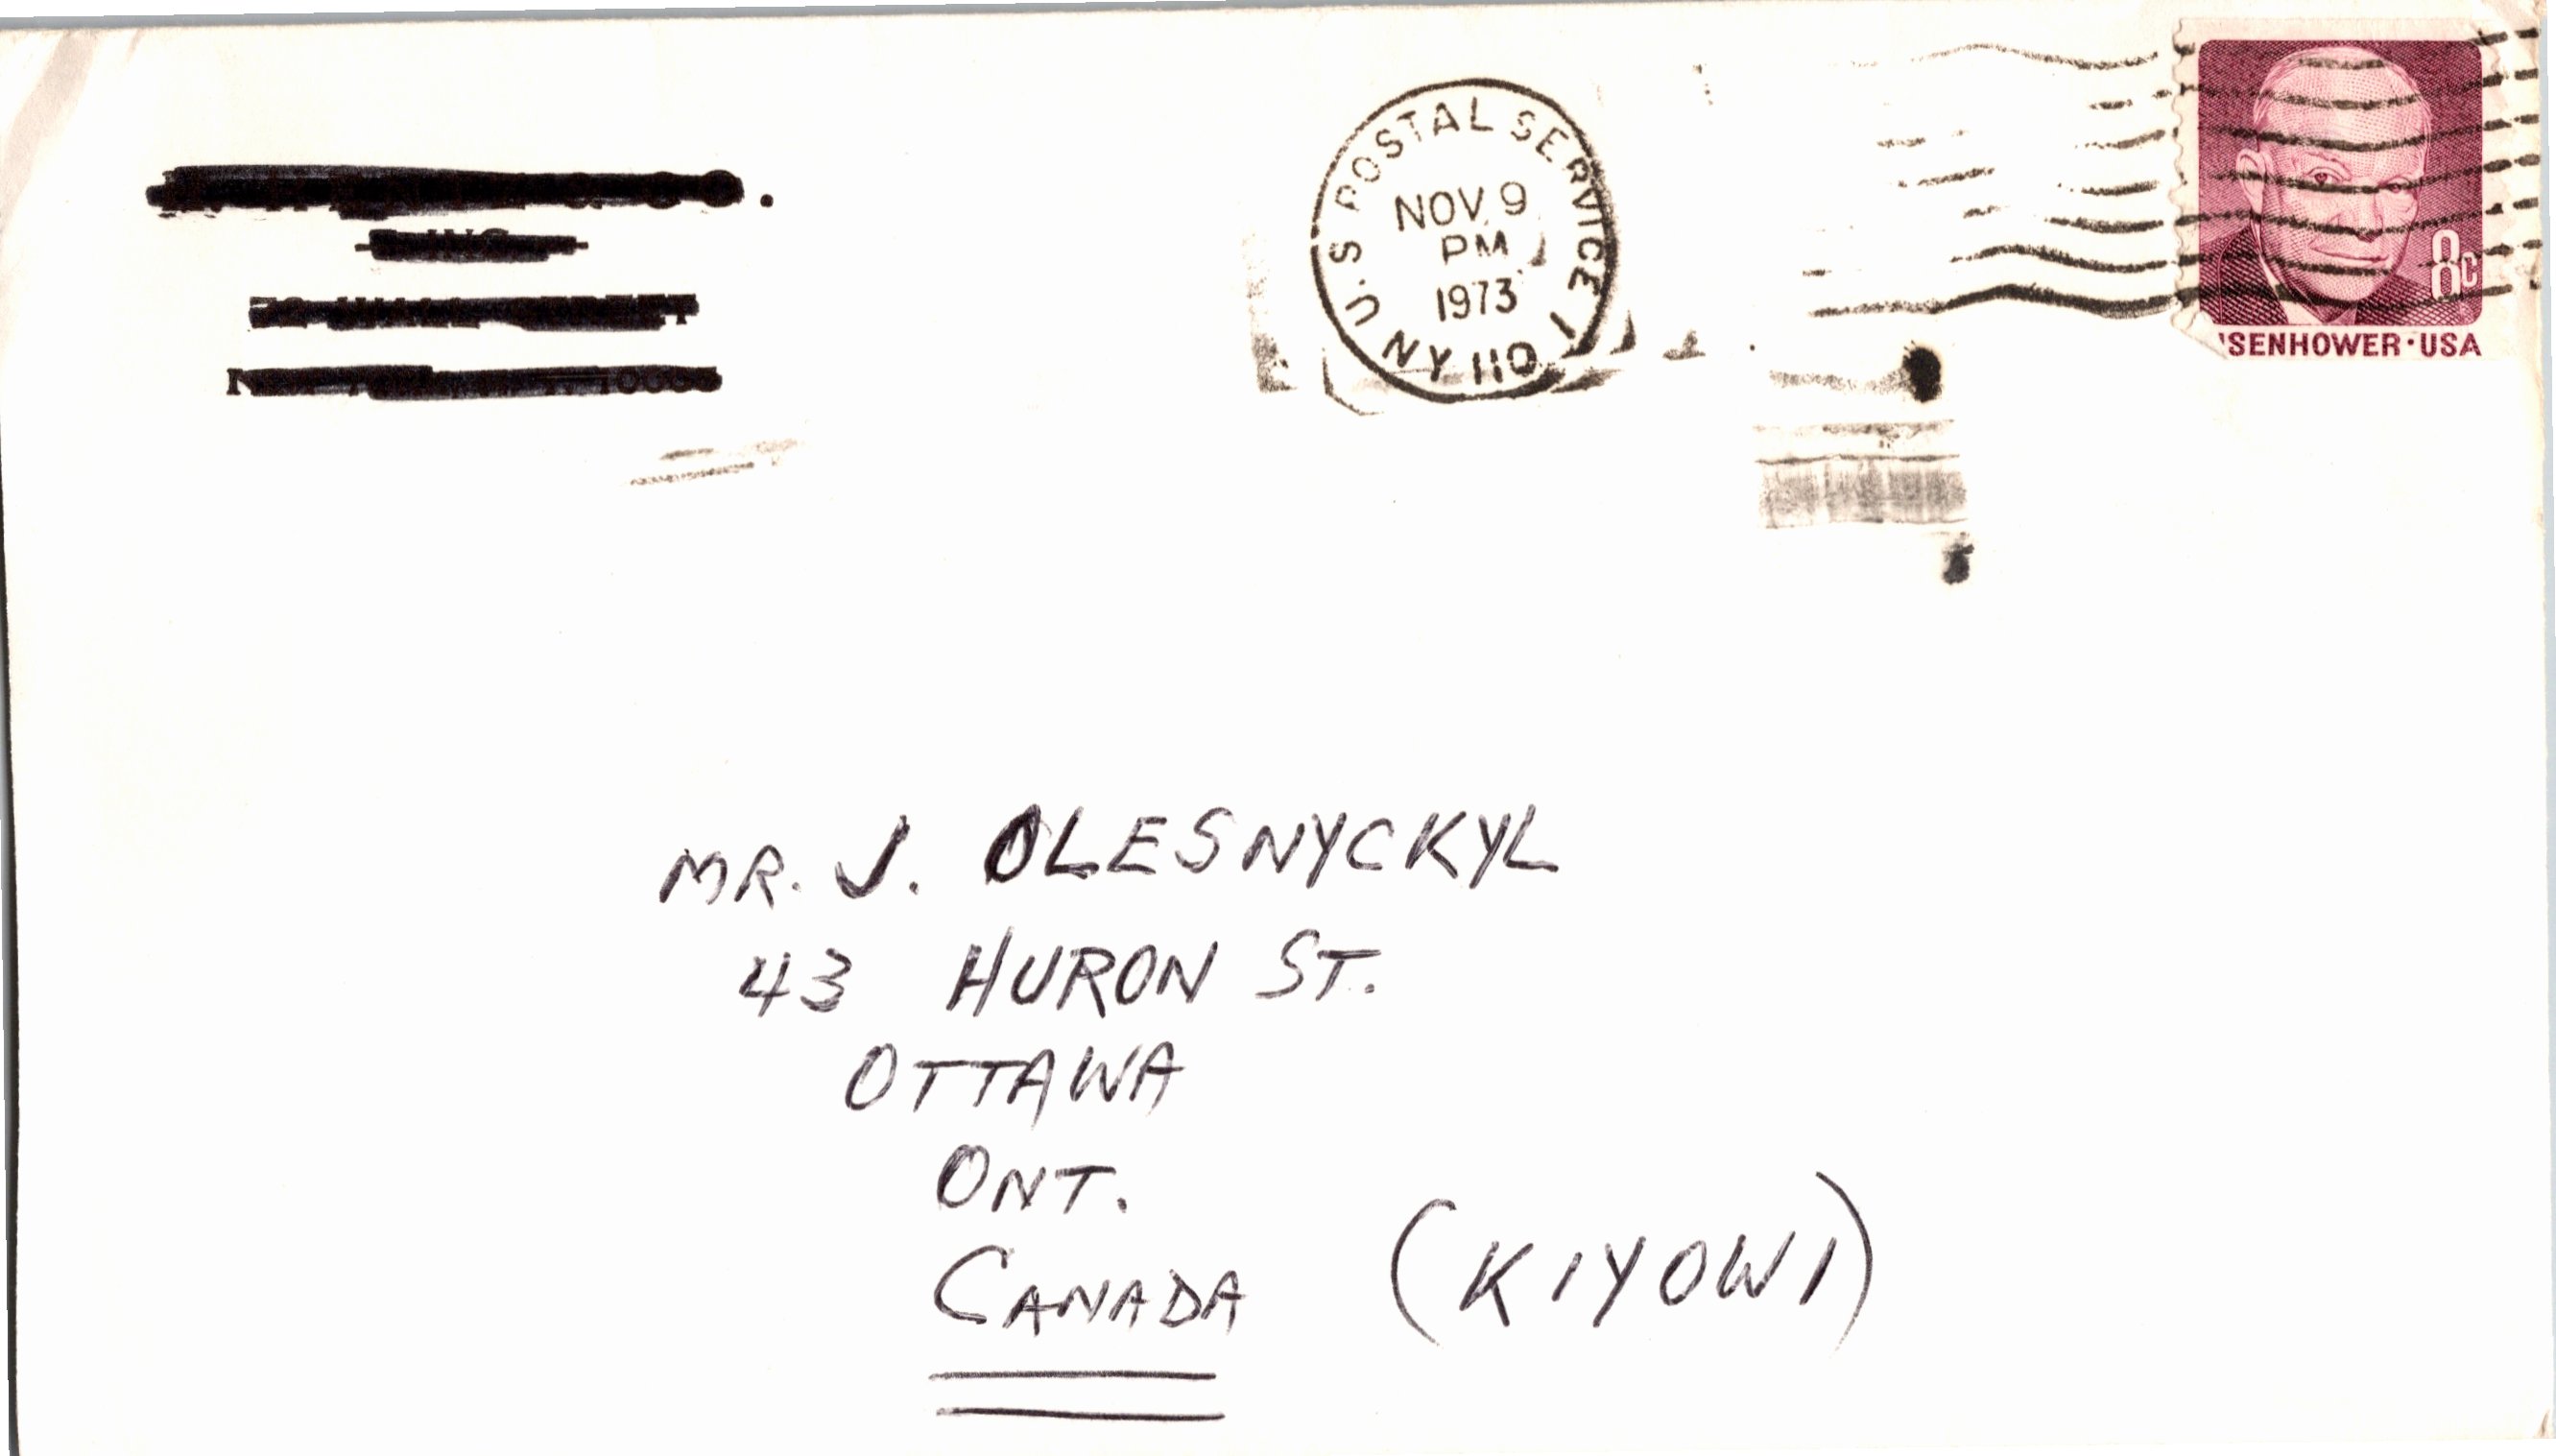 U.S POSTAL SERVICE
NY 110
NOV 9
PM
1973
8c
ISENHOWER·USA
MR. J. OLESNYCKYL
43 HURON ST.
OTTAWA
ONT.
CANADA
(KIYOWI)